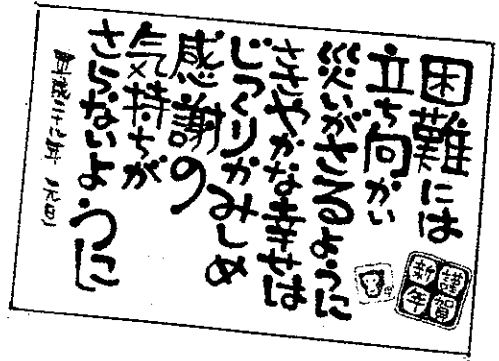 困難には
立ち向かい
災いがさるように
ささやかな幸せは
じっくりかみしめ
感謝の
気持ちが
さらないように
平成二十八年 元旦
謹賀
新年